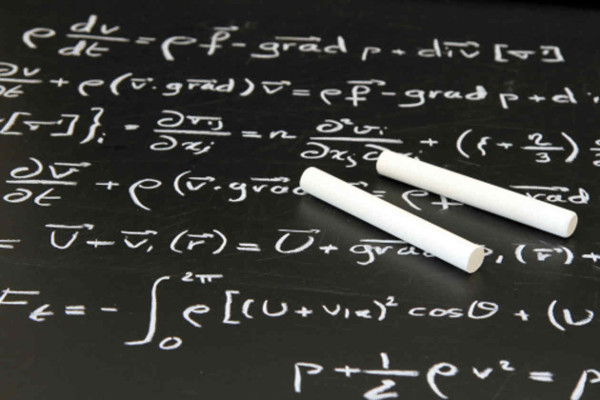 ρ dv/dt = ρ f⃗ - grad⃗ p + div⃗ [τ⃗]
∂v/∂t + ρ (v⃗ · grad⃗) v⃗ = ρf⃗ - grad p + d
[τ⃗]}ᵢ = ∂τᵢⱼ/∂xⱼ = n ∂²vᵢ/∂xⱼ + (ζ + 2/3)
∂v⃗/∂t + ρ (v⃗ · grad
= U⃗ + v⃗₁ (r⃗) = U⃗ + grad (r⃗) +
t = - ∫₀^2π ρ [(U + v₁)² cosθ + (U
p + 1/2 ρ v² = p